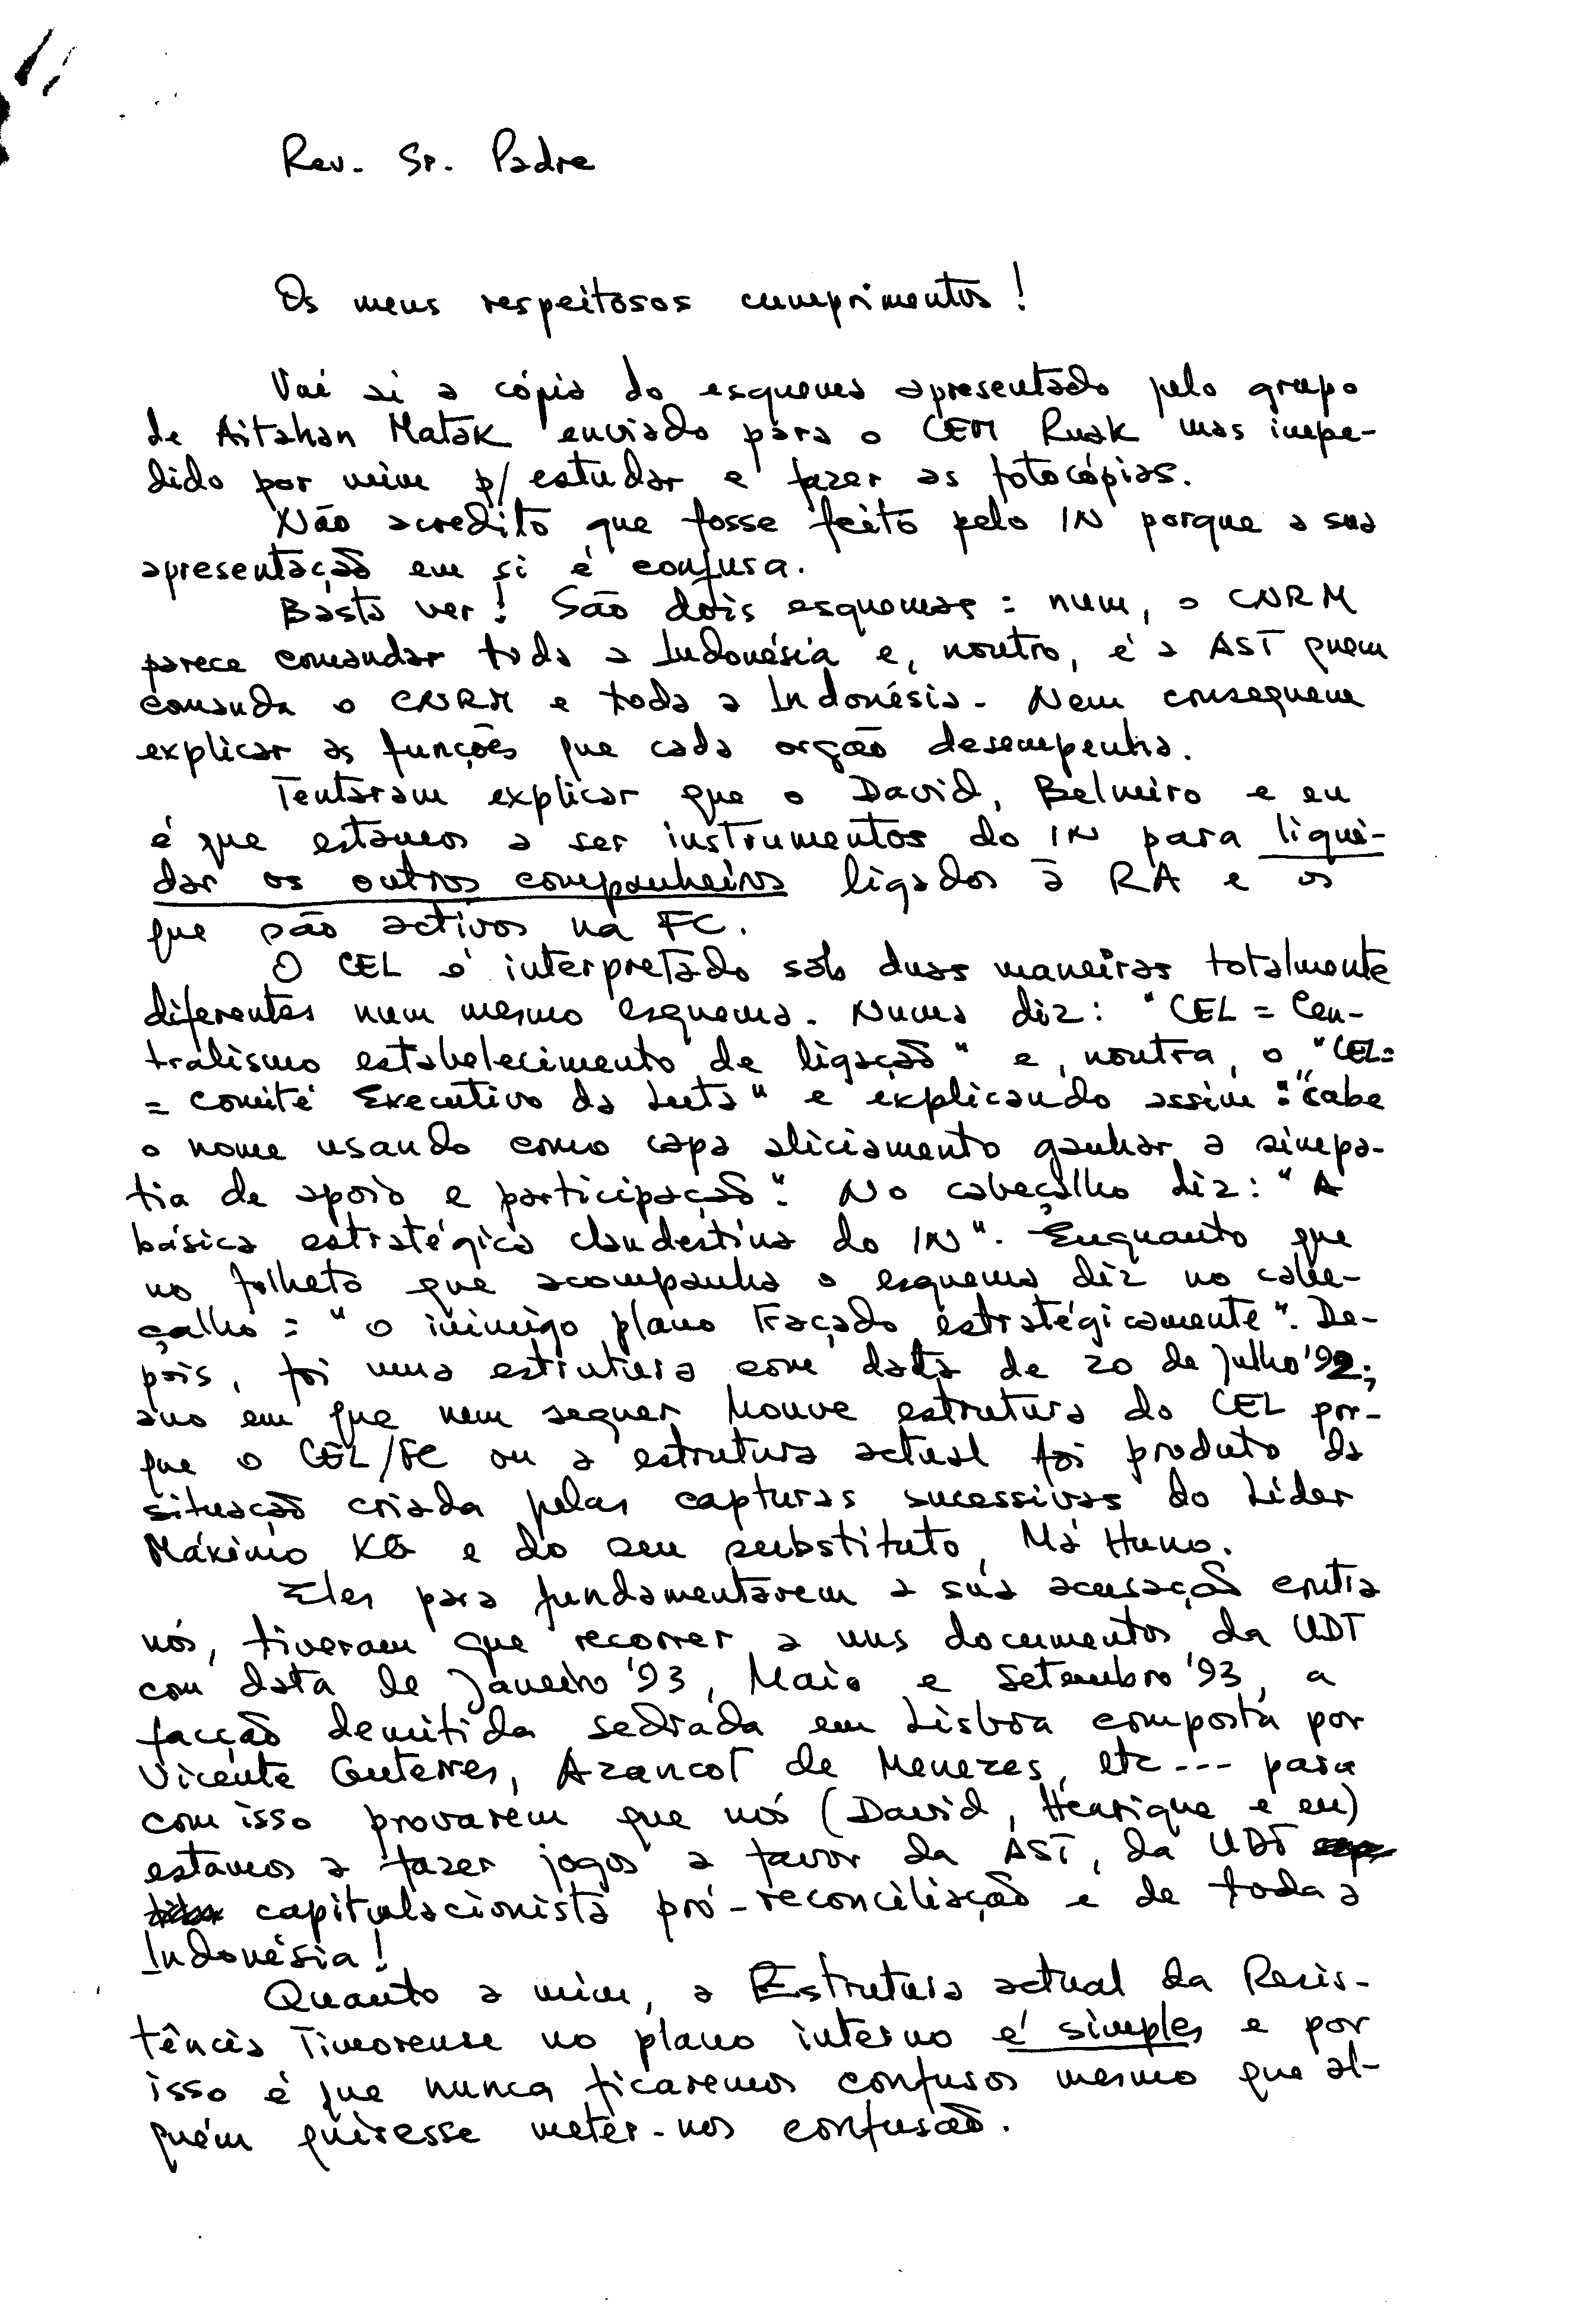 Rev. Sr. Padre
Os meus respeitosos cumprimentos!
Vai aí a cópia do esquema apresentado pelo grupo
de Aitahan Matak enviado para o CEM Ruak mas impe-
dido por mim p/ estudar e fazer as fotocópias.
Não acredito que fosse feito pelo IN porque a sua
apresentação em si é confusa.
Basta ver! São dois esquemas: num, o CNRM
parece comandar toda a Indonésia e, noutro, é a AST quem
comanda o CNRM e toda a Indonésia. Nem conseguem
explicar as funções que cada orgão desempenha.
Tentaram explicar que o David, Belmiro e eu
é que estamos a ser instrumentos do IN para liqui-
dar os outros companheiros ligados à RA e os
que são activos na FC.
O CEL é interpretado sob duas maneiras totalmente
diferentes num mesmo esquema. Numa diz: "CEL = Cen-
tralismo estabelecimento de ligação" e, noutra, o "CEL=
= Comité Executivo da Luta" e explicando assim: "cabe
o nome usando como capa aliciamento ganhar a simpa-
tia de apoio e participação". No cabeçalho diz: "A
básica estratégica clandestina do IN". Enquanto que
no folheto que acompanha o esquema diz no cabe-
çalho = "o inimigo plano traçado estratégicamente". De-
pois, foi uma estrutura com data de 20 de Julho '92;
ano em que nem sequer houve estrutura do CEL por-
que o CEL/FC ou a estrutura actual foi produto da
situação criada pelas capturas sucessivas do Líder
Máximo XG e do seu substituto, Má Huno.
Eles para fundamentarem a sua acusação contra
nós, tiveram que recorrer a uns documentos da UDT
com data de Janeiro '93, Maio e Setembro '93, a
facção demitida sediada em Lisboa composta por
Vicente Guterres, Azancot de Menezes, etc --- para
com isso provarem que nós (David, Henrique e eu)
estamos a fazer jogos a favor da AST, da UDT
capitulacionista pró-reconciliação e de toda a
Indonésia!
Quanto a mim, a Estrutura actual da Resis-
tência Timorense no plano interno é simples e por
isso é que nunca ficaremos confusos mesmo que al-
guém quisesse meter-nos confusão.